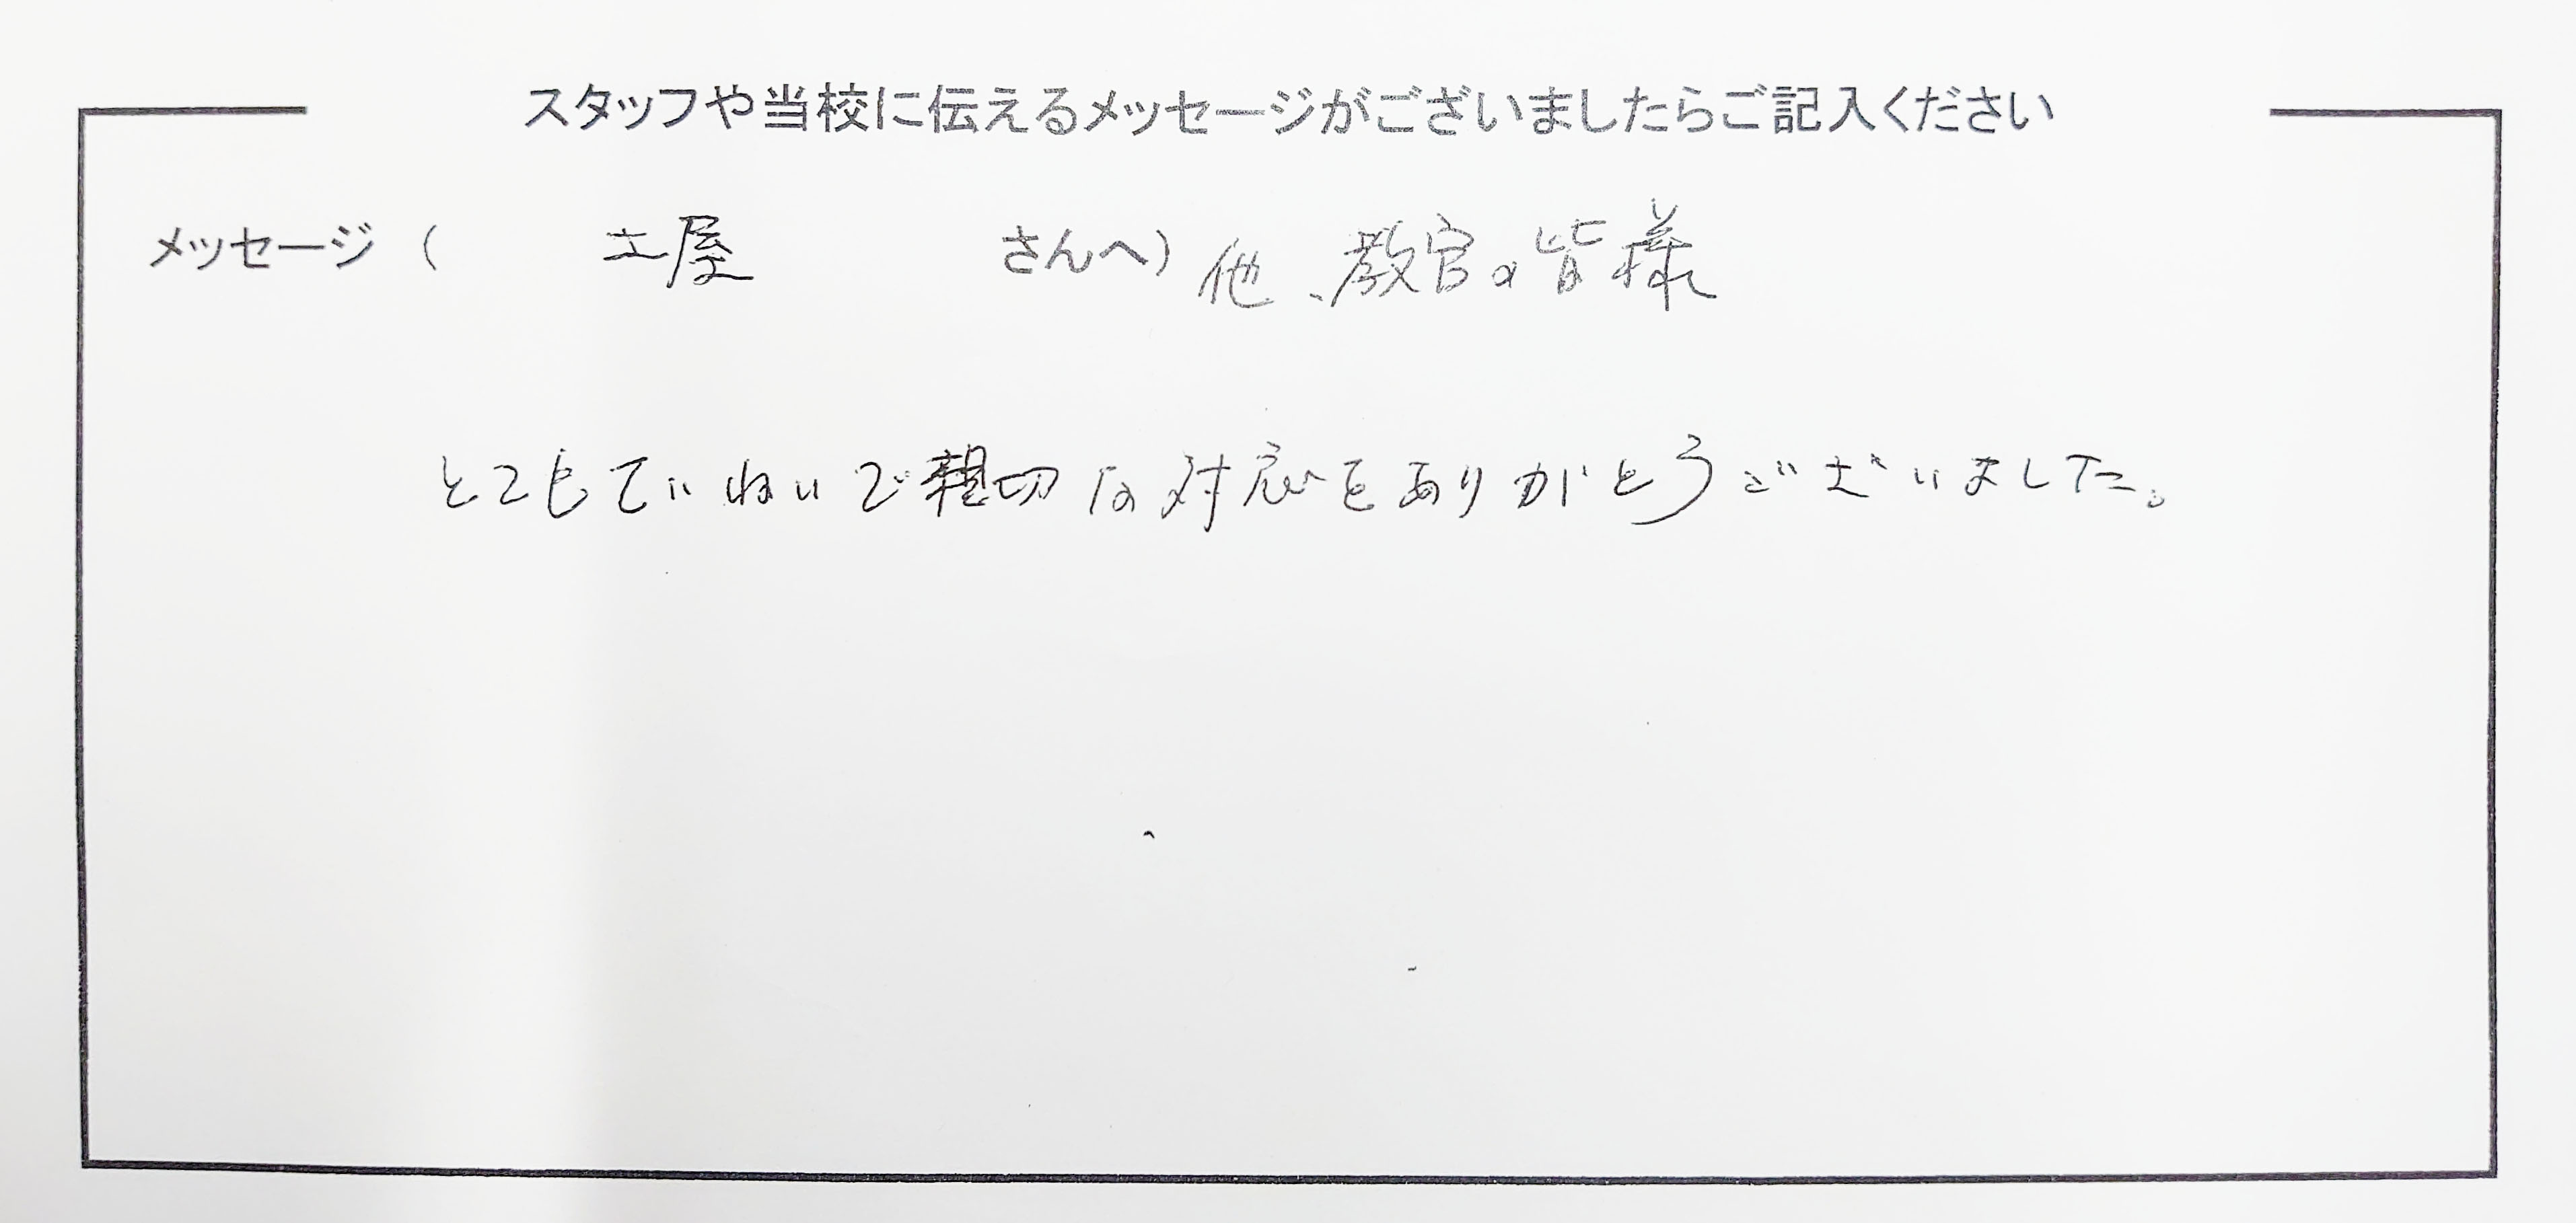 スタッフや当校に伝えるメッセージがございましたらご記入ください
メッセージ（ 土屋 さんへ）他、教官の皆様
とてもていねいで親切な対応をありがとうございました。